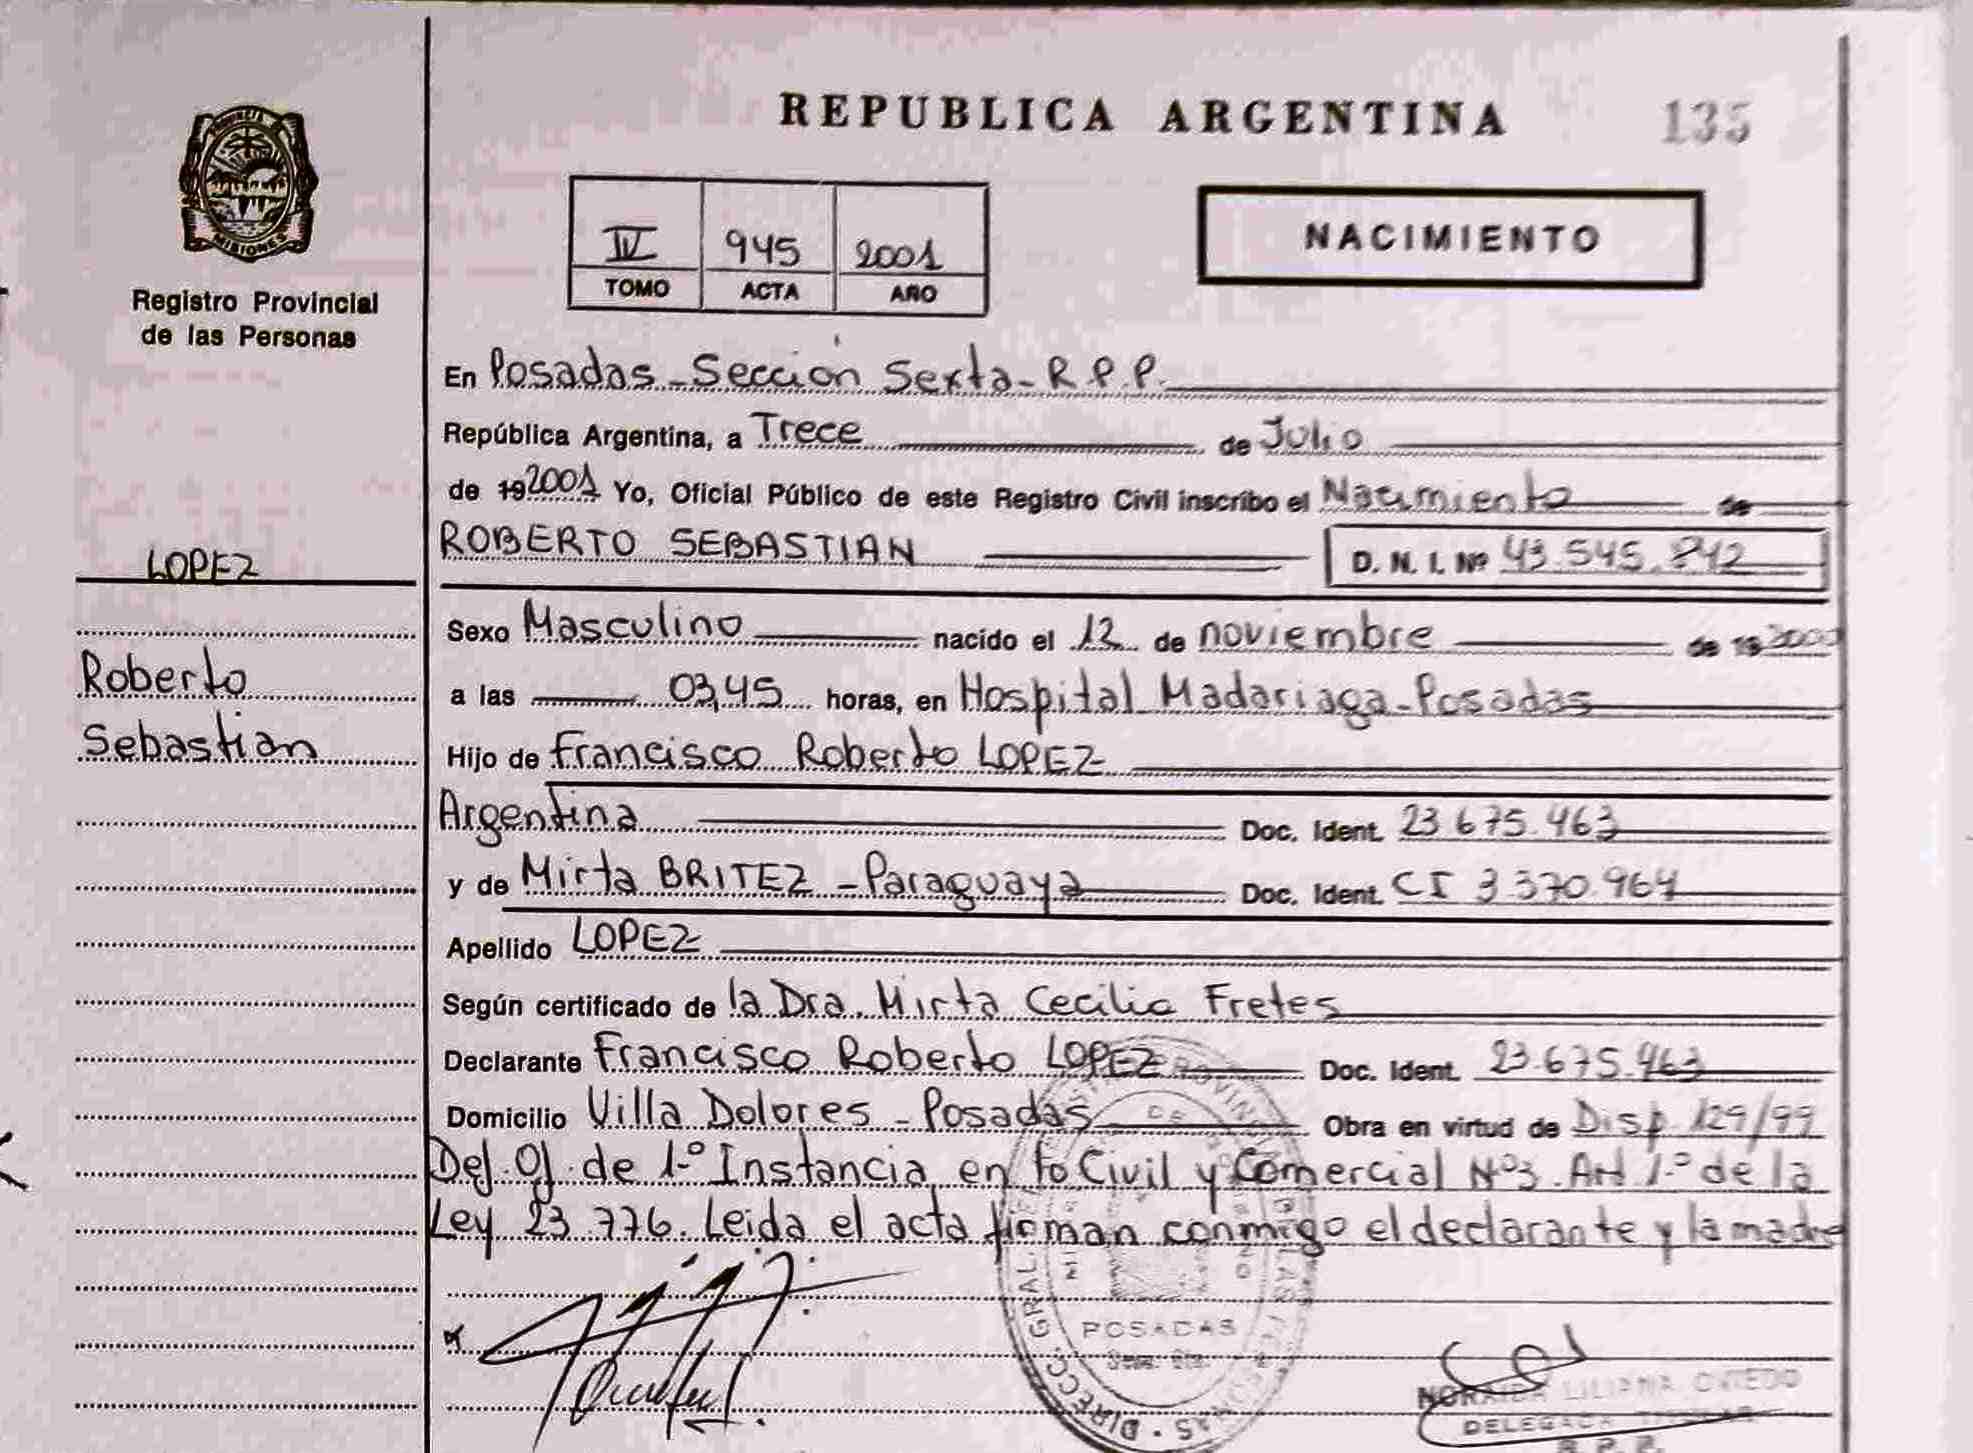 REPUBLICA ARGENTINA
135
PROVINCIA DE
MISIONES
Registro Provincial
de las Personas
IV 945 2001
TOMO ACTA AÑO
NACIMIENTO
En Posadas - Sección Sexta - R.P.P.
República Argentina, a Trece de Julio
de 19 2001 Yo, Oficial Público de este Registro Civil inscribo el Nacimiento de
ROBERTO SEBASTIAN D. N. I. Nº 43.545.742
LOPEZ
Roberto
Sebastian
Sexo Masculino nacido el 12 de noviembre de 19 2000
a las 03,45 horas, en Hospital Madariaga - Posadas
Hijo de Francisco Roberto LOPEZ
Argentina Doc. Ident. 23.675.463
y de Mirta BRITEZ - Paraguaya Doc. Ident. CI 3.370.964
Apellido LOPEZ
Según certificado de la Dra. Mirta Cecilia Fretes
Declarante Francisco Roberto LOPEZ Doc. Ident. 23.675.463
Domicilio Villa Dolores - Posadas Obra en virtud de Disp. 129/99
Def. Of. de 1º Instancia en lo Civil y Comercial Nº3. Art 1º de la
Ley 23.776. Leida el acta firman conmigo el declarante y la madre
POSADAS
DIRECC. GRAL.
NORAIDA LILIANA OVIEDO
DELEGADA TITULAR
R. P. P.